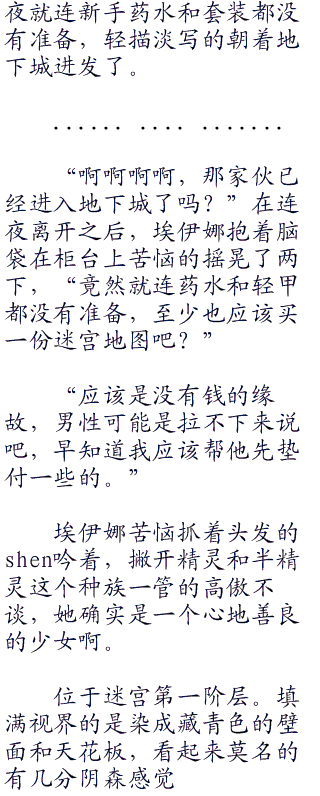 夜就连新手药水和套装都没
有准备，轻描淡写的朝着地
下城进发了。
······ ···· ·······
“啊啊啊啊，那家伙已
经进入地下城了吗？”在连
夜离开之后，埃伊娜抱着脑
袋在柜台上苦恼的摇晃了两
下，“竟然就连药水和轻甲
都没有准备，至少也应该买
一份迷宫地图吧？”
“应该是没有钱的缘
故，男性可能是拉不下来说
吧，早知道我应该帮他先垫
付一些的。”
埃伊娜苦恼抓着头发的
shen吟着，撇开精灵和半精
灵这个种族一管的高傲不
谈，她确实是一个心地善良
的少女啊。
位于迷宫第一阶层。填
满视界的是染成藏青色的壁
面和天花板，看起来莫名的
有几分阴森感觉